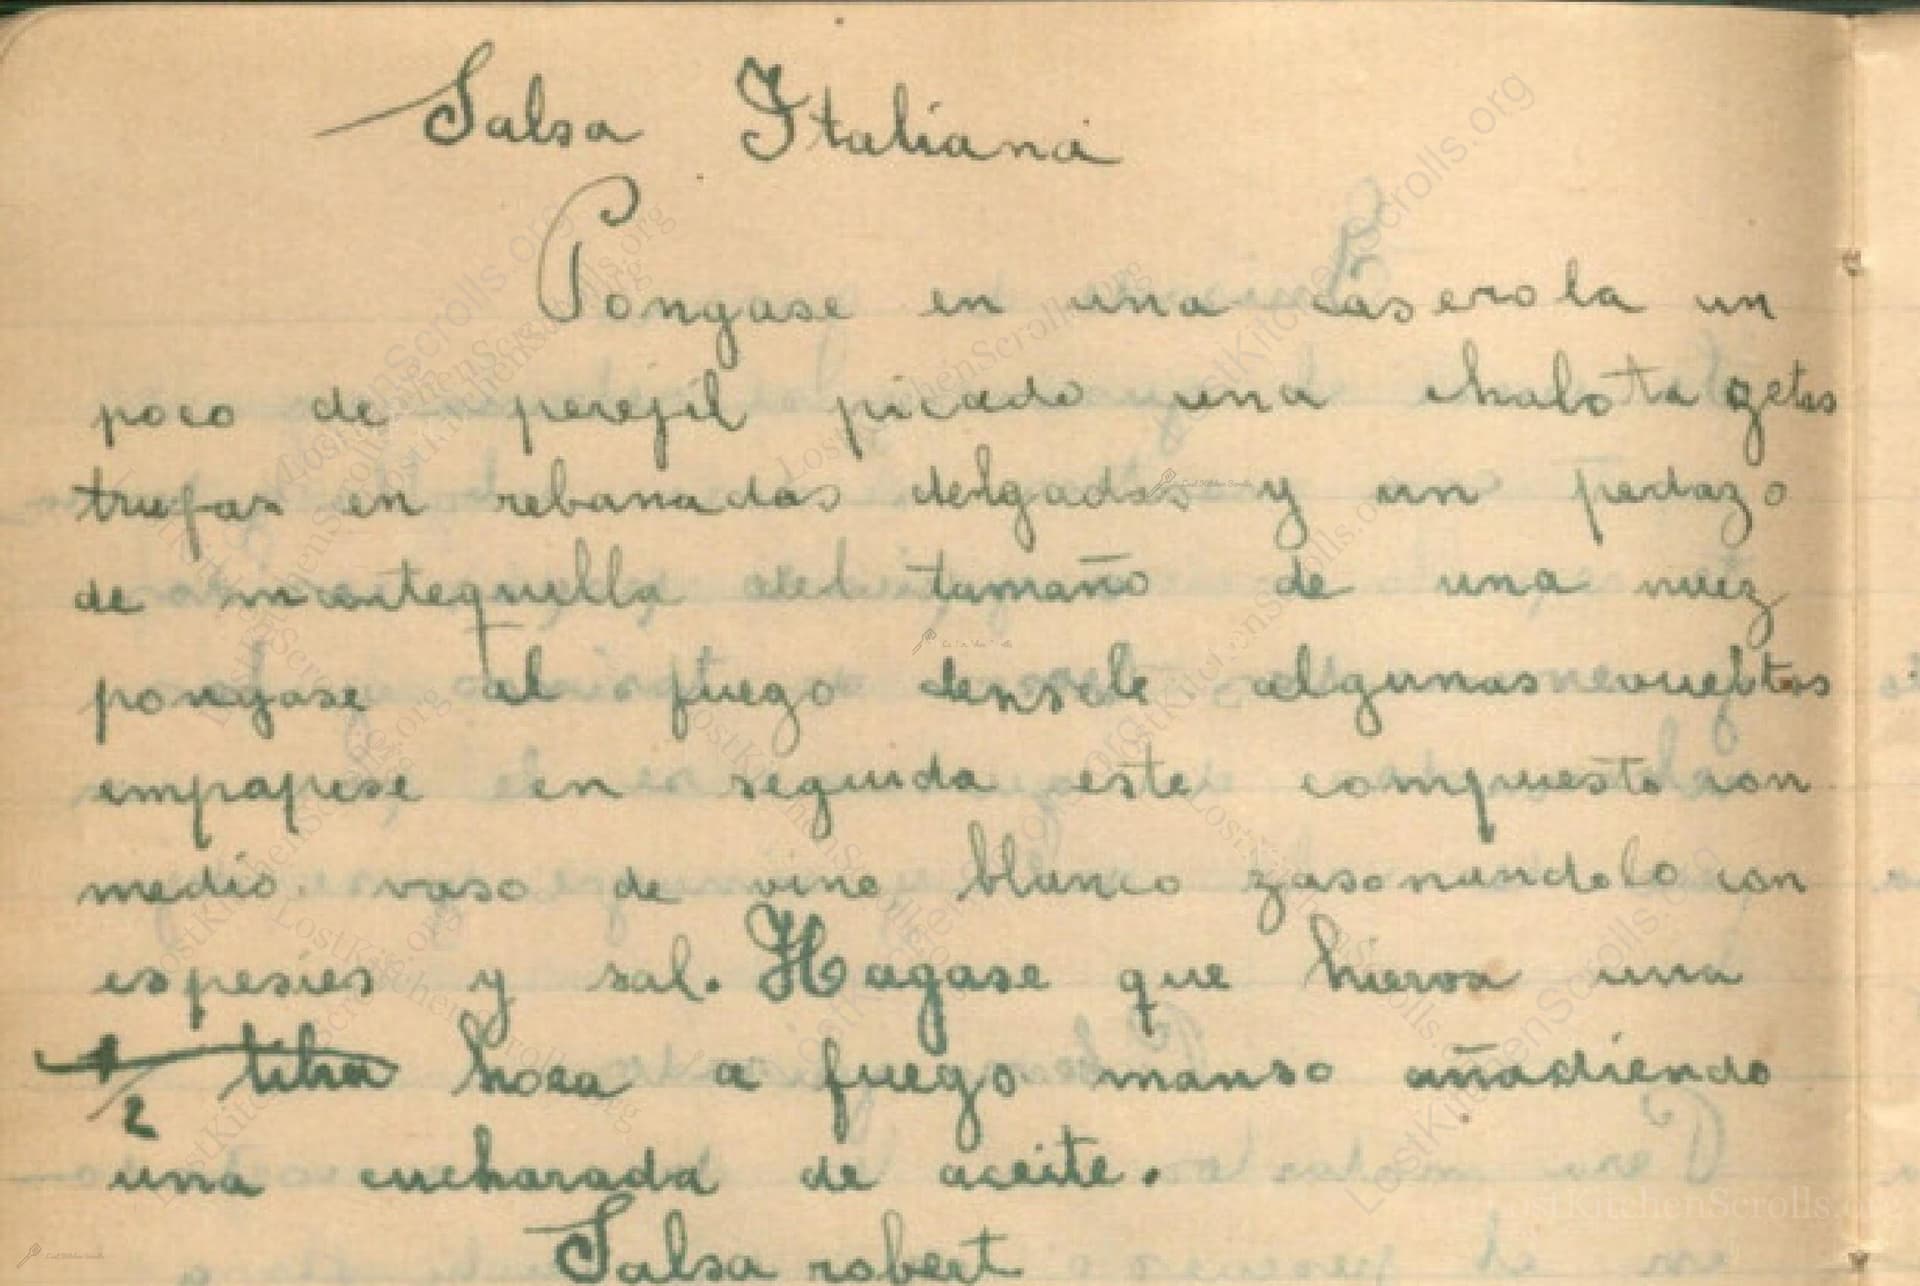 Salsa Italiana
Pongase en una caserola un
poco de perejil picado una chalota zetas
trufas en rebanadas delgadas y un pedazo
de mantequella del tamaño de una nuez
pongase al fuego densele algunas vueltas
empapese en seguida este compuesto con
medio vaso de vino blanco zasonandolo con
espesies y sal. Hagase que hierva una
1/2 hora a fuego manso añadiendo
una cucharada de aceite.
Salsa robert